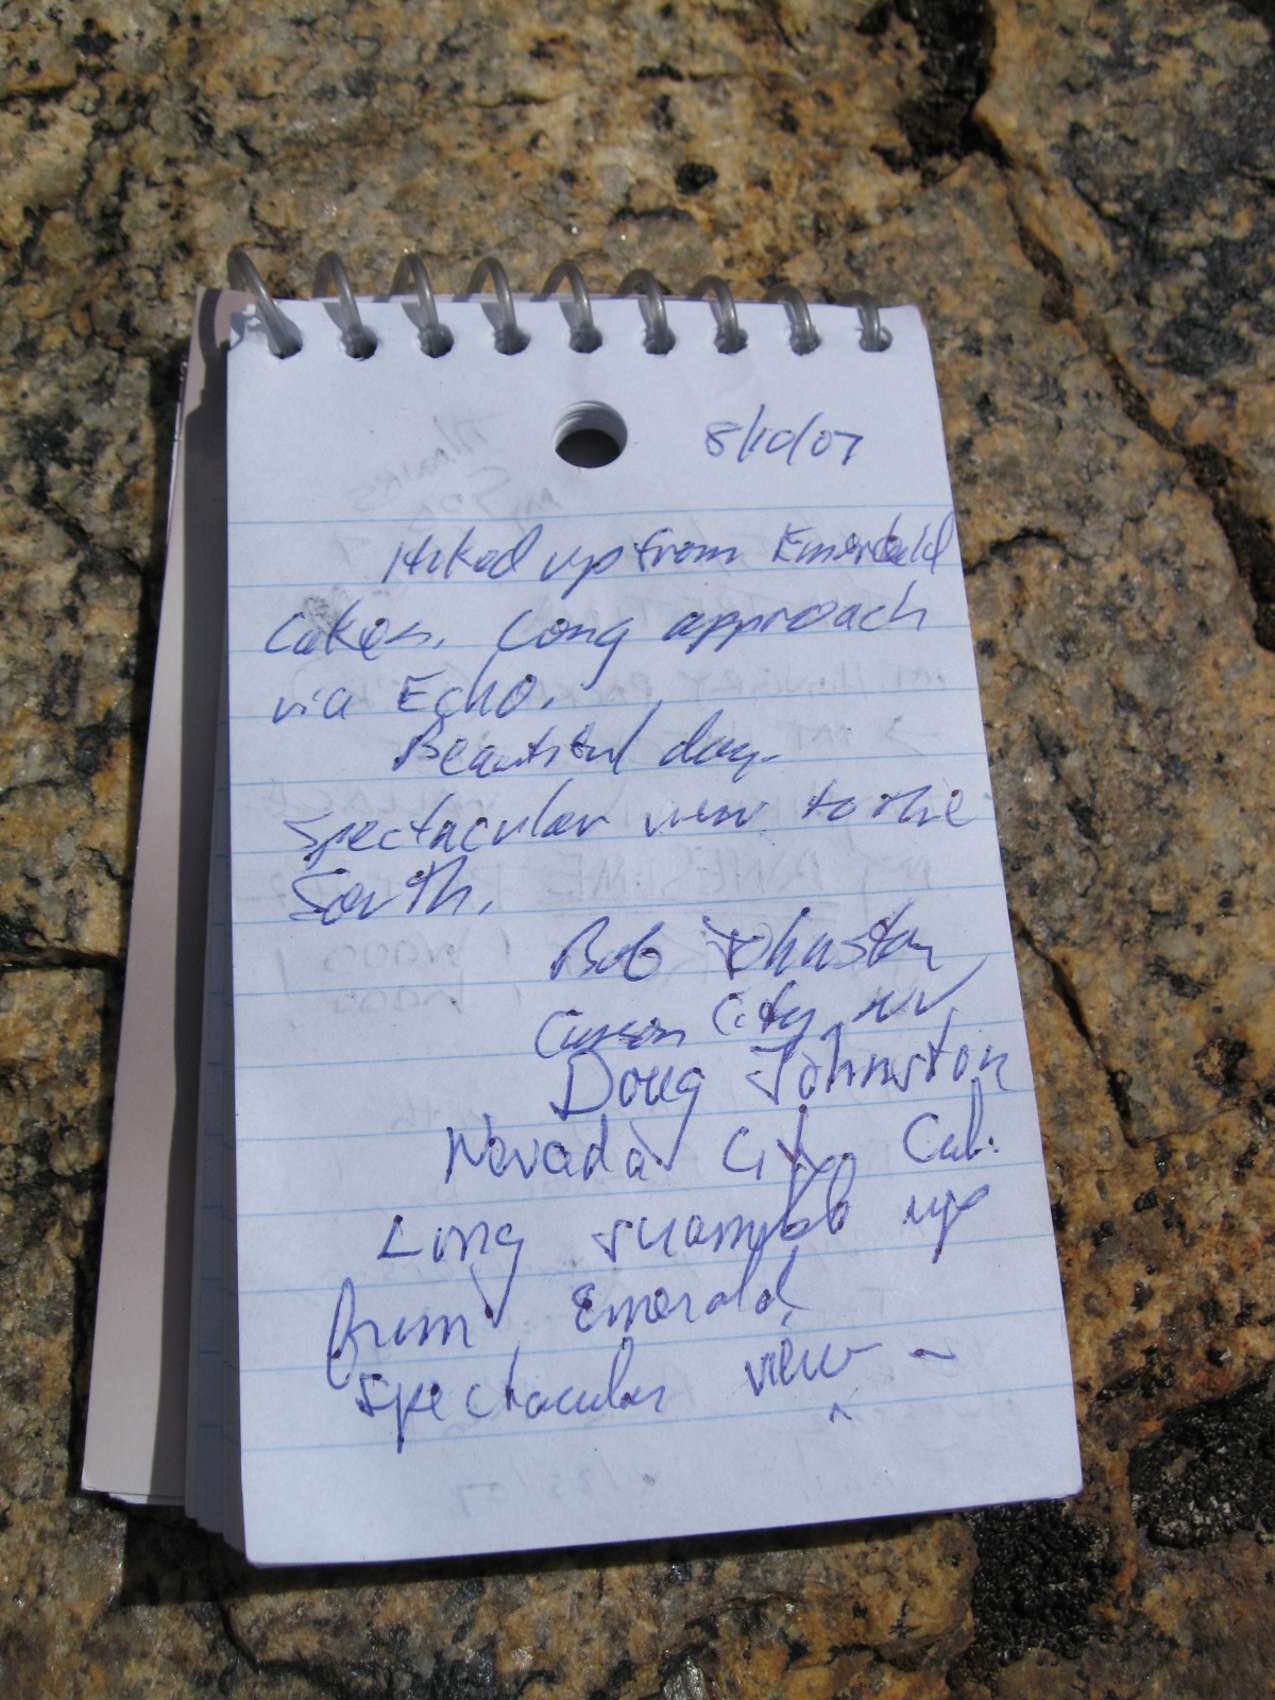 8/10/07
Hiked up from Emerald
Lakes. Long approach
via Echo.
Beautiful day.
Spectacular view to the
South.
Bob Johnston
Carson City NV
Doug Johnston
Nevada City Cal.
Long scramble up
from Emerald
spectacular view ~